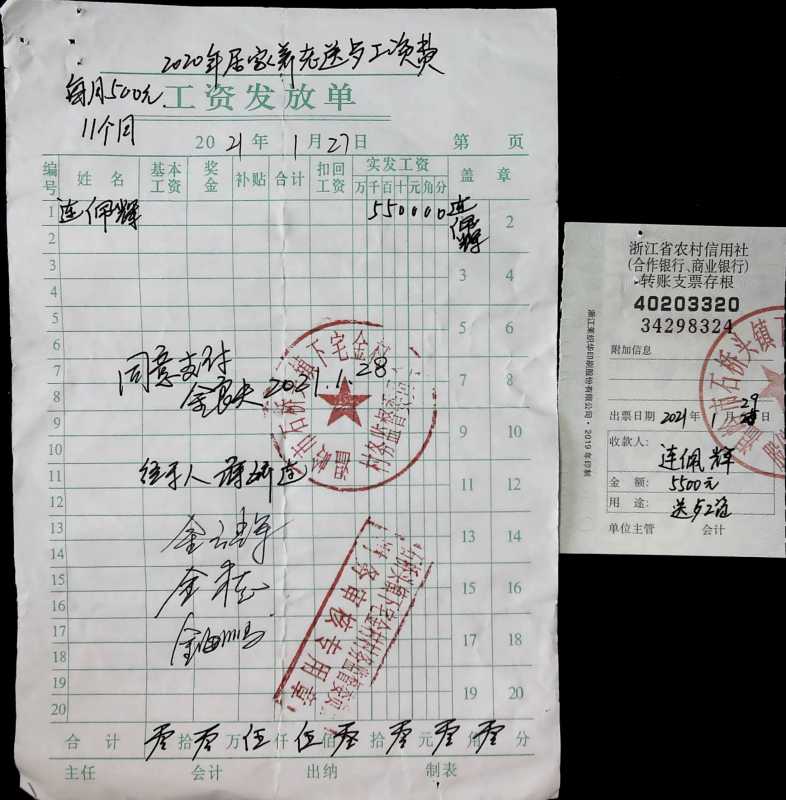 2020年居家养老送歺工资费
每月500元
11个月
工资发放单
2021年1月27日 第 页
编号 姓名 基本工资 奖金 补贴 合计 扣回工资 实发工资 盖章
万千百十元角分
1 连佩辉 550000 连佩辉 2
2
3 3 4
4
5 5 6
6
7 同意支付 7 8
8 2021.1.28
9 9 10
10
11 经手人 11 12
12
13 13 14
14
15 15 16
16
17 17 18
18
19 19 20
20
合计 零拾零万伍仟伍佰零拾零元零角零分
主任 会计 出纳 制表
石桥头镇下宅金村
村务监督委员会
财务审核专用章
浙江省农村信用社
(合作银行、商业银行)
转账支票存根
40203320
34298324
附加信息
出票日期 2021年1月29日
收款人:
连佩辉
金额: 5500元
用途: 送歺工资
单位主管 会计
市石桥头镇下